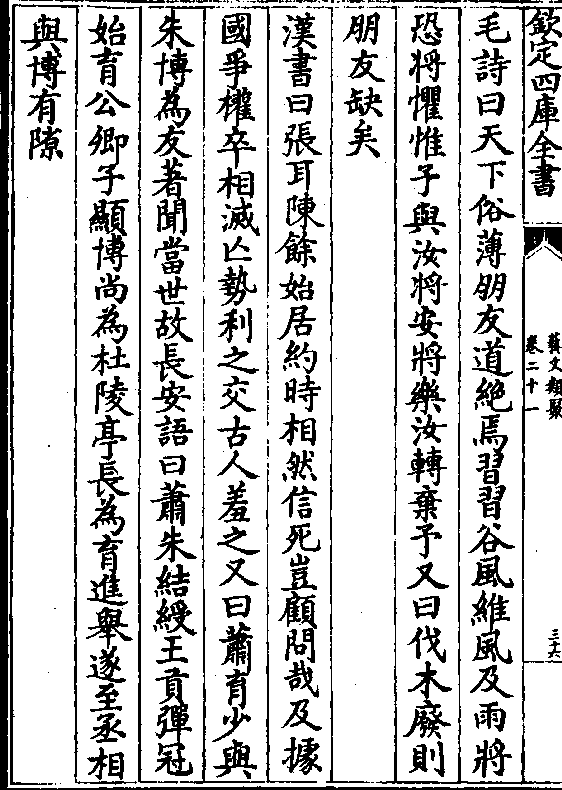 欽定四庫全書
藝文類聚
卷二十一
三六
毛詩曰天下俗薄朋友道絶焉習習谷風維風及雨將
恐將懼惟予與汝將安將樂汝轉棄予又曰伐木廢則
朋友缺矣
漢書曰張耳陳餘始居約時相然信死豈顧問哉及據
國爭權卒相滅亡勢利之交古人羞之又曰蕭育少與
朱博為友著聞當世故長安語曰蕭朱結綬王貢彈冠
始育公卿子顯博尚為杜陵亭長為育進舉遂至丞相
與博有隙